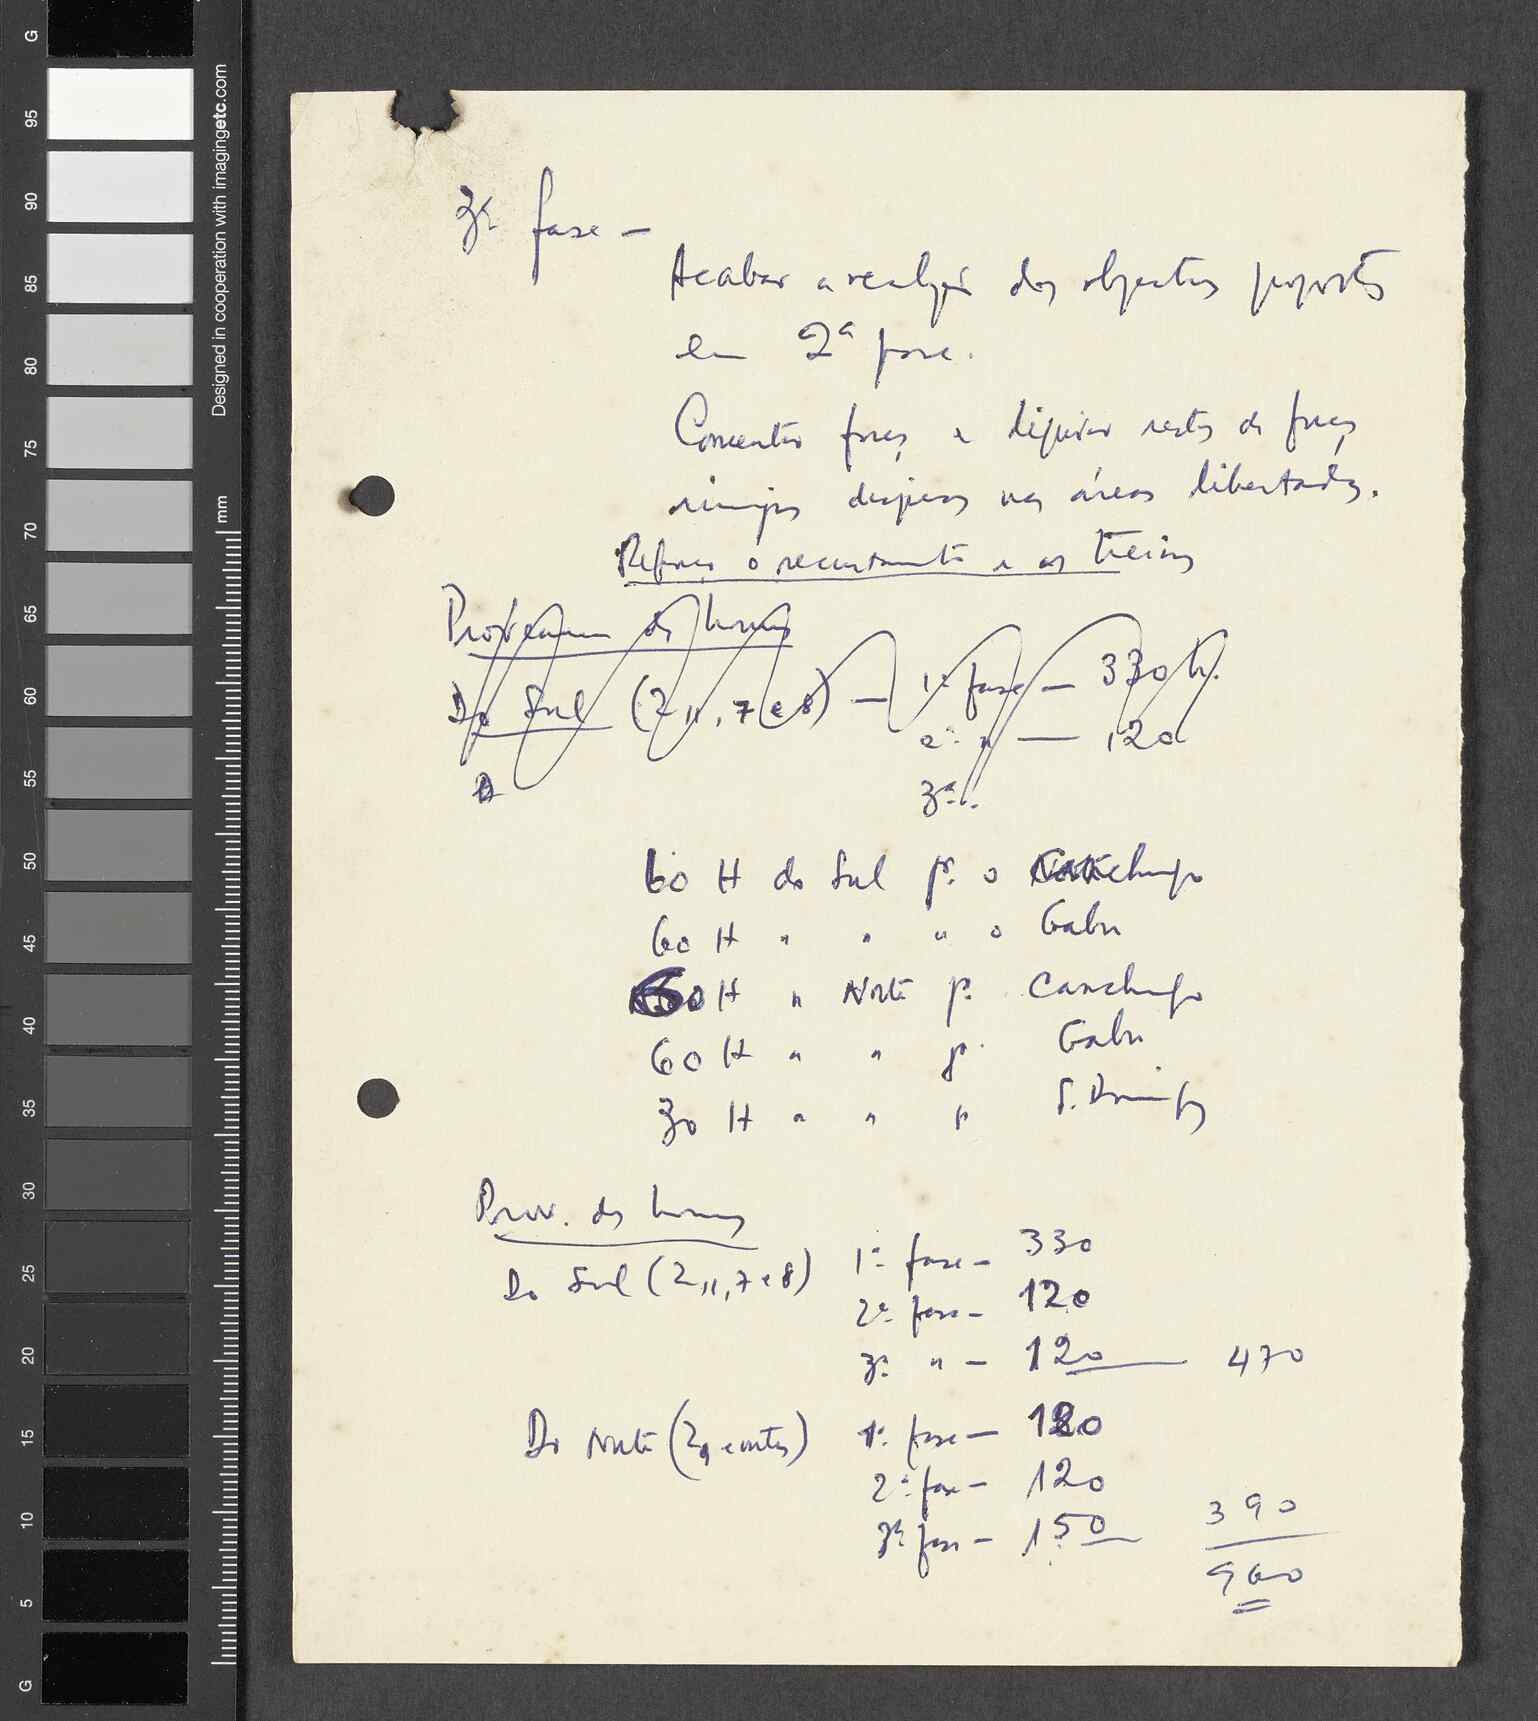 3ª fase —
Acabar a realização dos objectivos propostos
em 2ª fase.
Concentrar forças e liquidar restos de forças
inimigas dispersas nas áreas libertadas.
Reforçar o recrutamento e os treinos
Proveniencia dos homens
Do Sul (2, 11, 7 e 8) — 1ª fase — 330 h.
2ª " — 120
3ª
60 H do Sul p. o Canchungo
60 H " " " o Gabu
60 H " Norte p. Canchungo
60 H " " p. Gabu
30 H " " p S. Domingos
Prov. dos homens
Do Sul (2, 11, 7 e 8) 1ª fase — 330
2ª fase — 120
3ª " — 120 — 470
Do Norte (2, 9 e outras) 1ª fase — 120
2ª fase — 120
3ª fase — 150 390
960
G
95
90
85
80
75
70
65
60
55
50
45
40
35
30
25
20
15
10
5
G
mm
Designed in cooperation with imagingetc.com